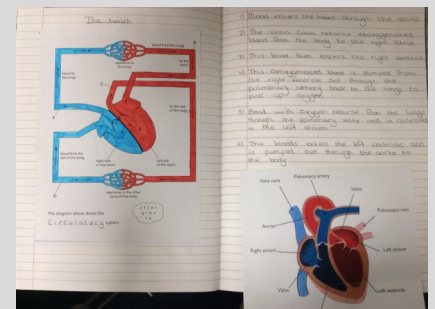 The heart
blood from the lungs
capillaries in the lungs
to the heart
blood to the lungs
to the rest of the body
right side of the heart
left side of the heart
blood from the rest of the body
capillaries in the other parts of the body
The diagram above shows the
Circulatory system.
1) Blood enters the heart through the veins
2) The vena cava returns deoxygenated
blood from the body to the right atria
3) This blood then enters the right ventricle
4) This deoxygenated blood is pumped from
the right ventricle out through the
pulmonary artery back to the lungs to
pick up oxygen.
5) Blood with oxygen returns from the lungs
through the pulmonary veins and is collected
in the left atrium.
6) The blood enters the left ventricle and
is pumped out through the aorta to
the body
Vena cava
Pulmonary artery
Valve
Pulmonary vein
Aorta
Right atrium
Left atrium
Valve
Left ventricle